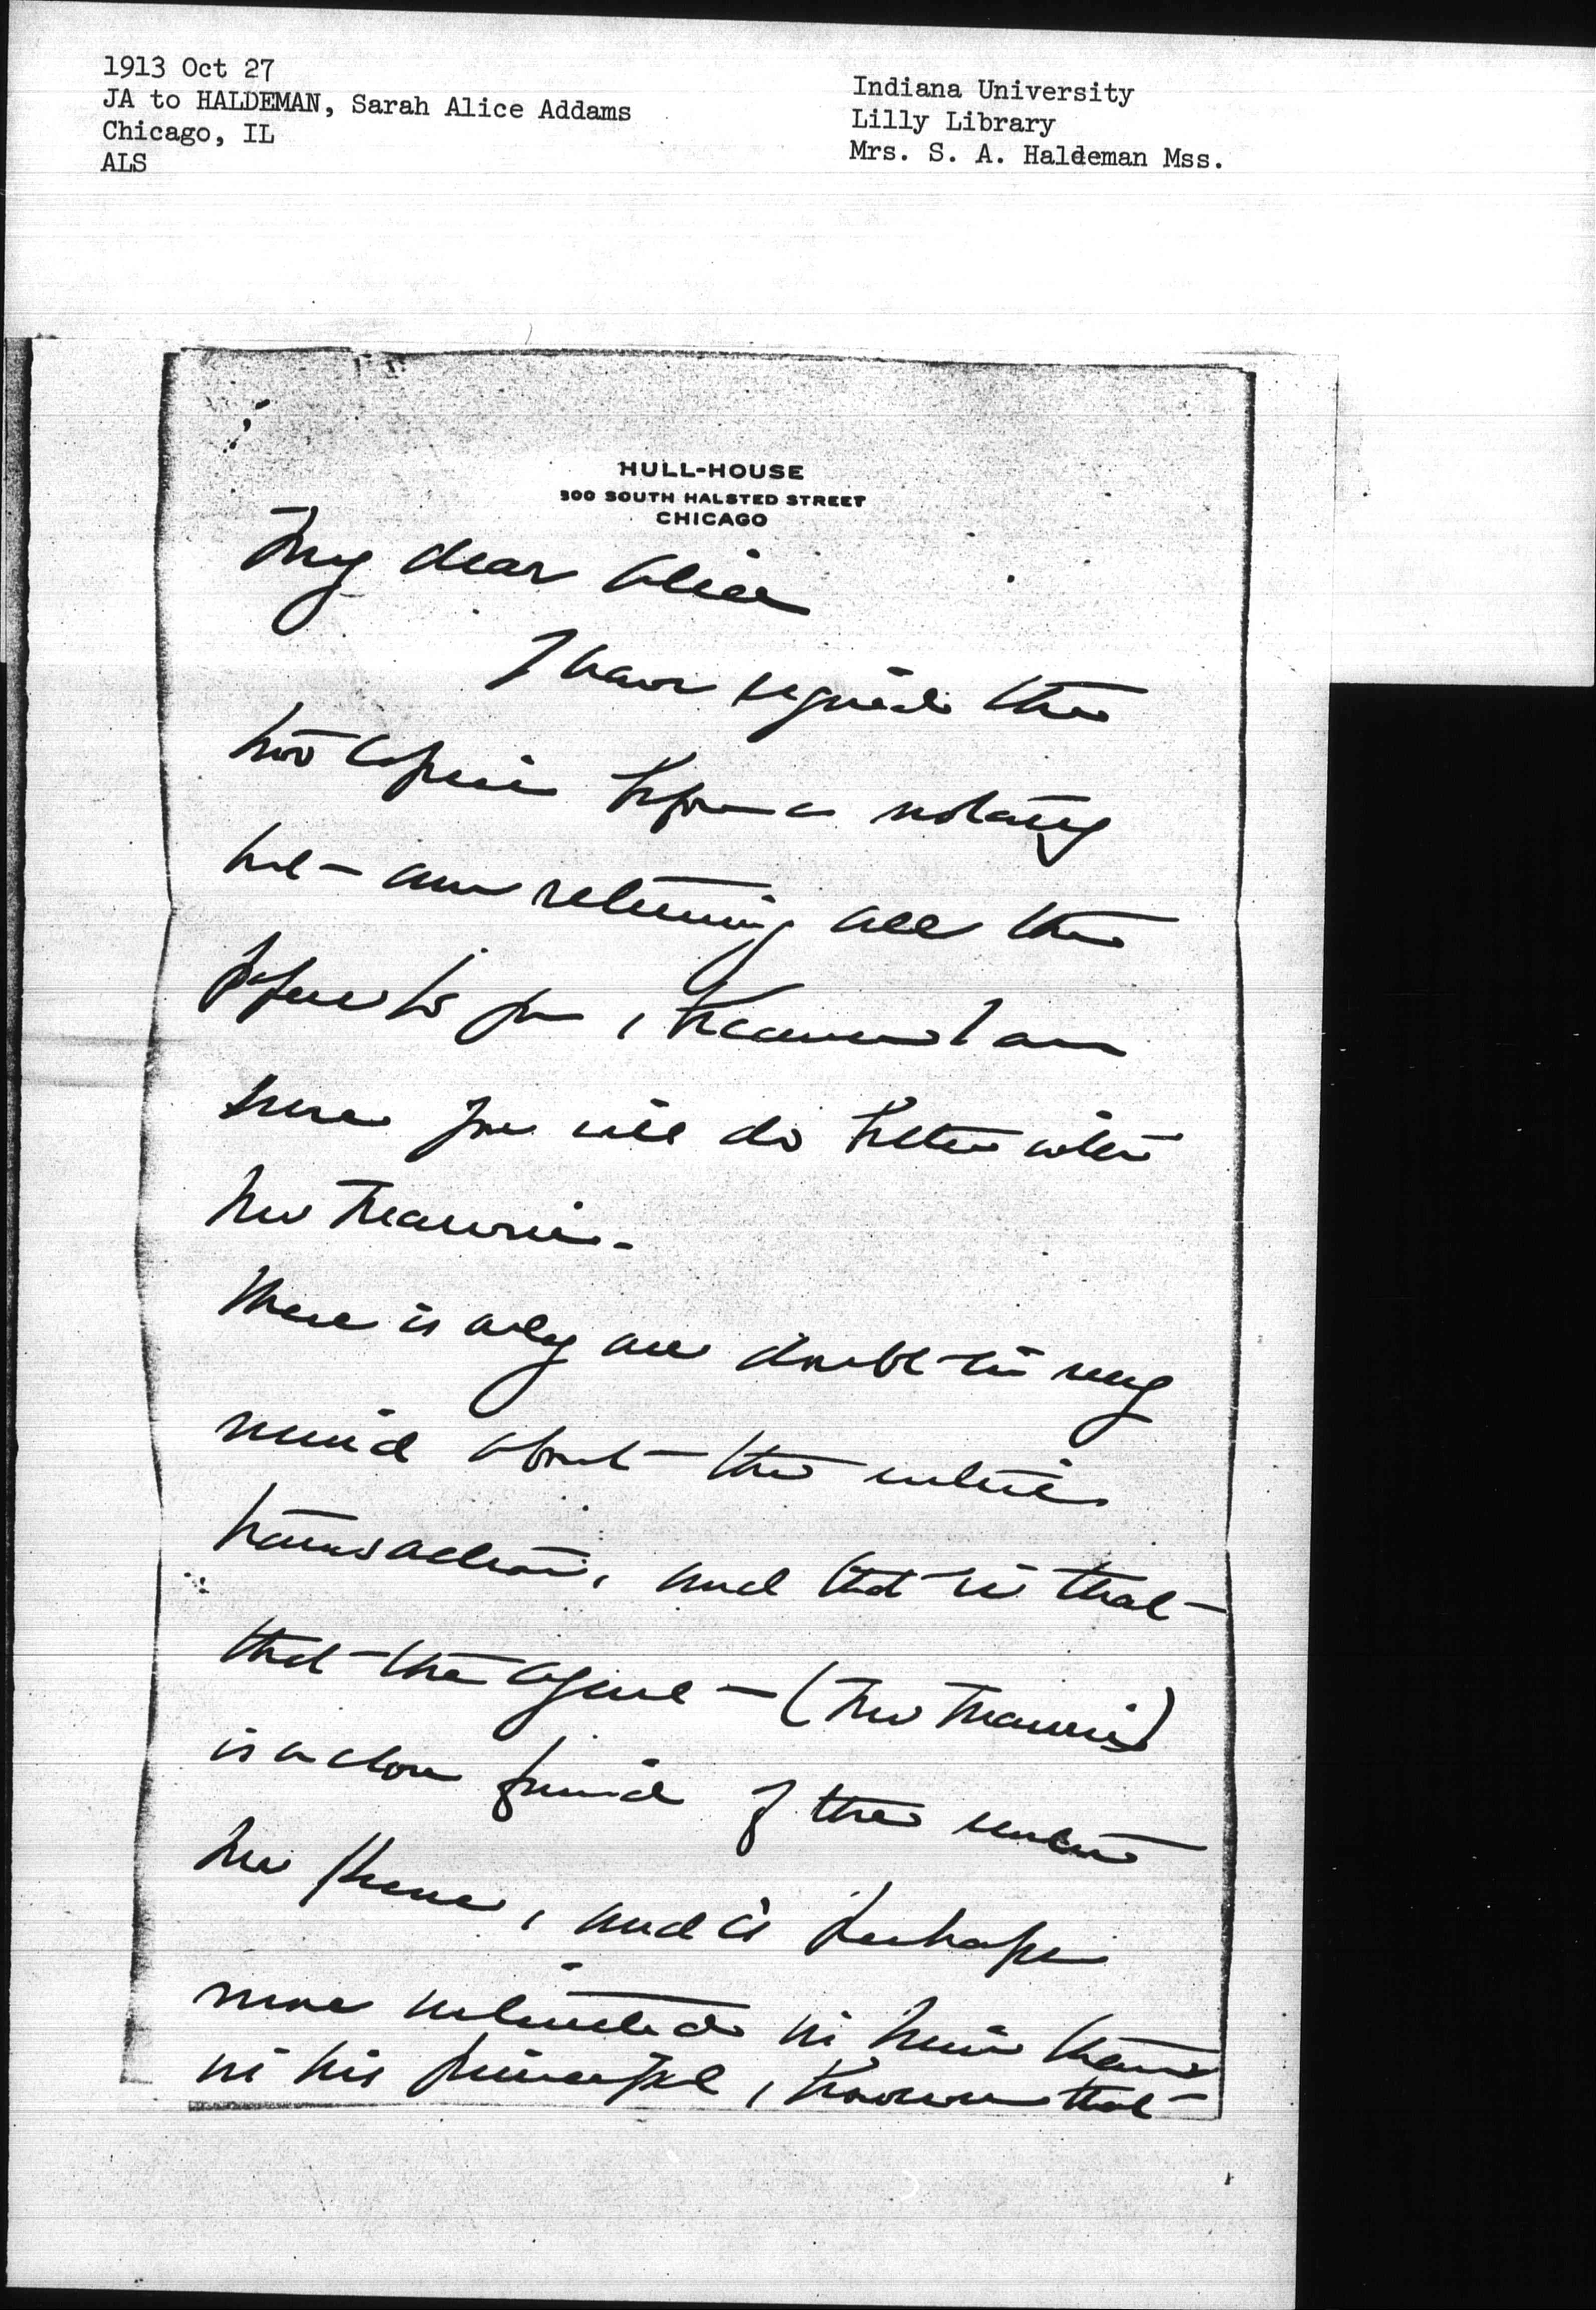 1913 Oct 27
JA to HALDEMAN, Sarah Alice Addams
Chicago, IL
ALS
Indiana University
Lilly Library
Mrs. S. A. Haldeman Mss.
HULL-HOUSE
800 SOUTH HALSTED STREET
CHICAGO
My dear Alice
I have signed the
two copies before a notary
but - am returning all the
papers to you, because I am
sure you will do better with
Mr
There is only one doubt in my
mind about the entire
transaction, and that is that
that the agent - (Mr
is a close friend of the renter
Mr, and is perhaps
more interested in him than
in his principal, that